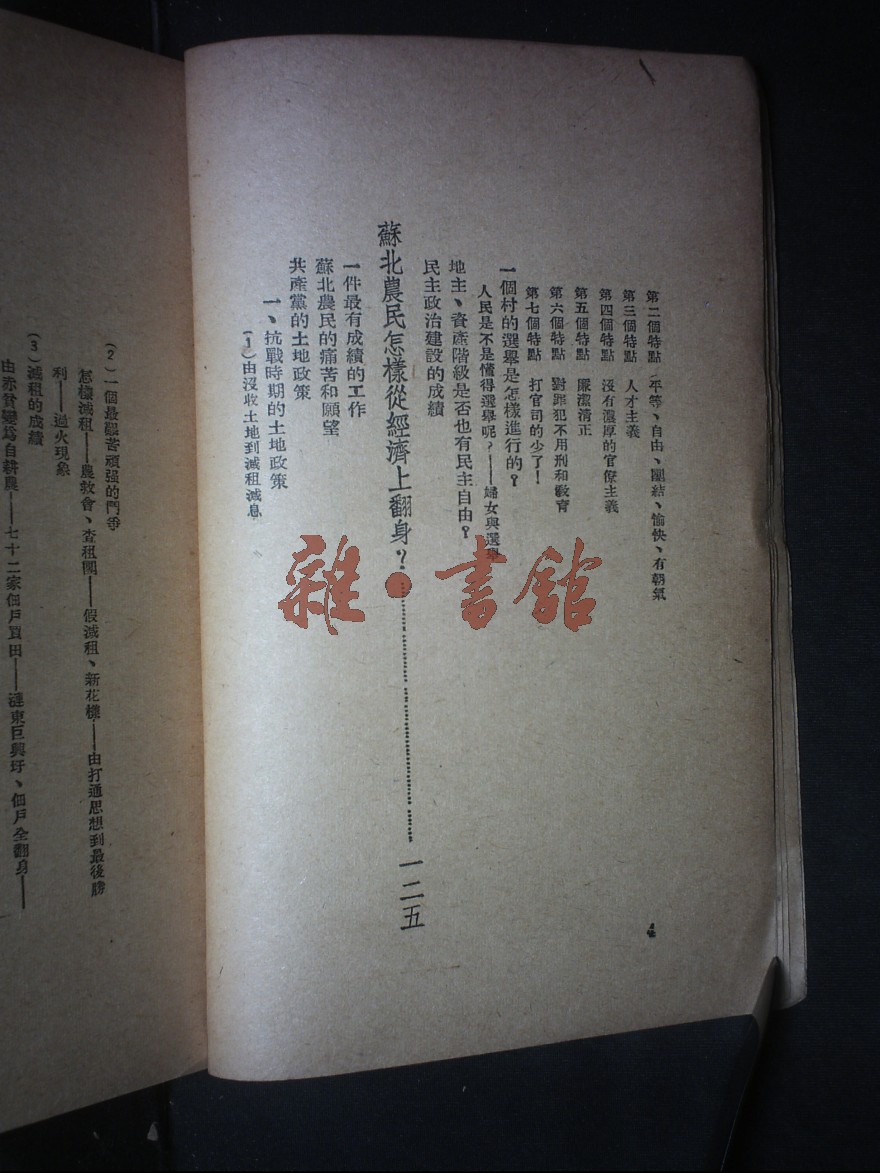 第二個特點 平等、自由、團結、愉快、有朝氣
第三個特點 人才主義
第四個特點 沒有濃厚的官僚主義
第五個特點 廉潔清正
第六個特點 對罪犯不用刑和教育
第七個特點 打官司的少了！
一個村的選舉是怎樣進行的？
人民是不是懂得選舉呢？——婦女與選舉
地主、資產階級是否也有民主自由？
民主政治建設的成績
蘇北農民怎樣從經濟上翻身？……………………一二五
一件最有成績的工作
蘇北農民的痛苦和願望
共產黨的土地政策
一、抗戰時期的土地政策
(1)由沒收土地到減租減息
(2)一個最艱苦頑强的鬥爭
怎樣減租——農救會、查租團——假減租、新花樣——由打通思想到最後勝
利——過火現象
(3)減租的成績
由赤貧變爲自耕農——七十二家佃戶買田——漣東巨興圩、佃戶全翻身——
雜·書館